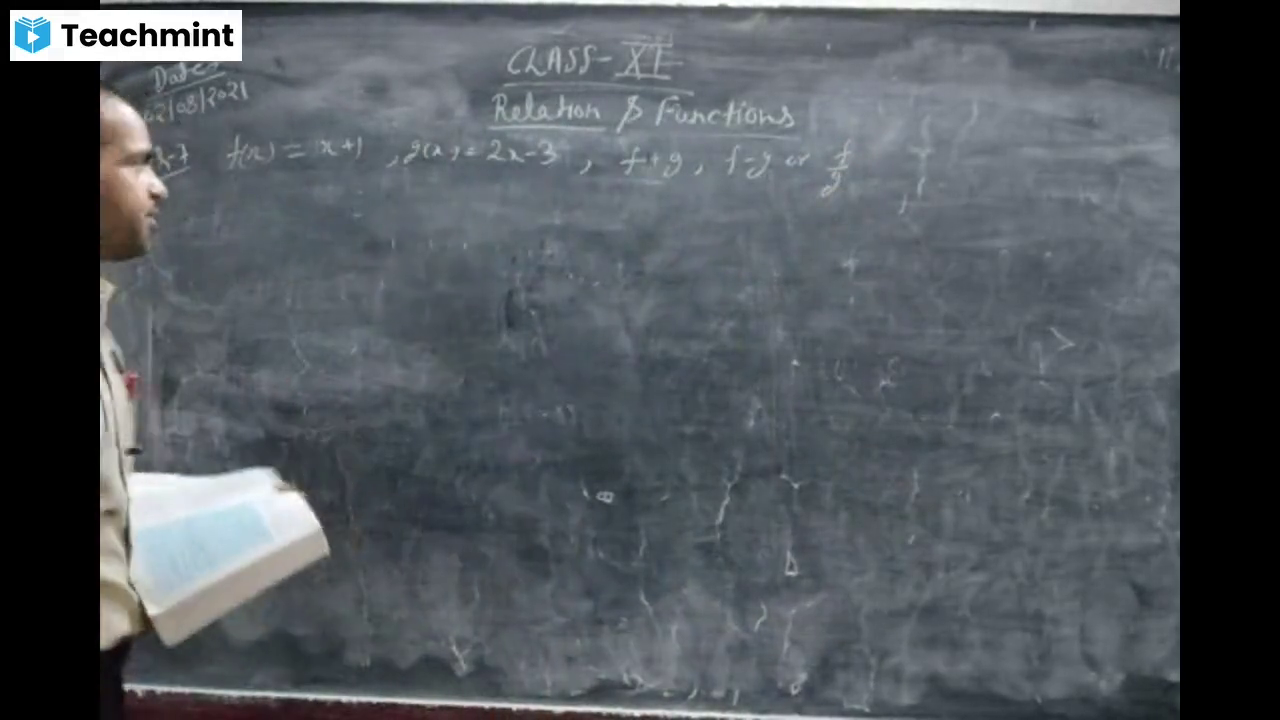 Teachmint
CLASS-XI
Date
02/08/2021
Relation & Functions
f(x) = x+1 , g(x) = 2x-3 , f+g , f-g or f/g